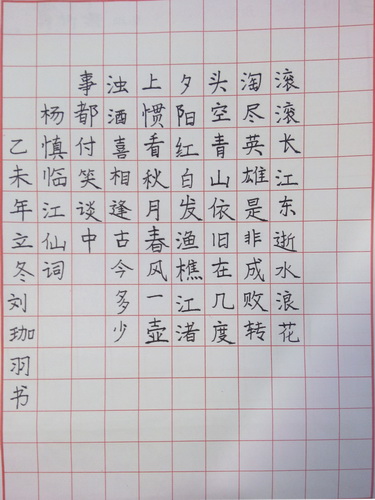 滚滚长江东逝水浪花
淘尽英雄是非成败转
头空青山依旧在几度
夕阳红白发渔樵江渚
上惯看秋月春风一壶
浊酒喜相逢古今多少
事都付笑谈中
杨慎临江仙词
乙未年立冬刘珈羽书